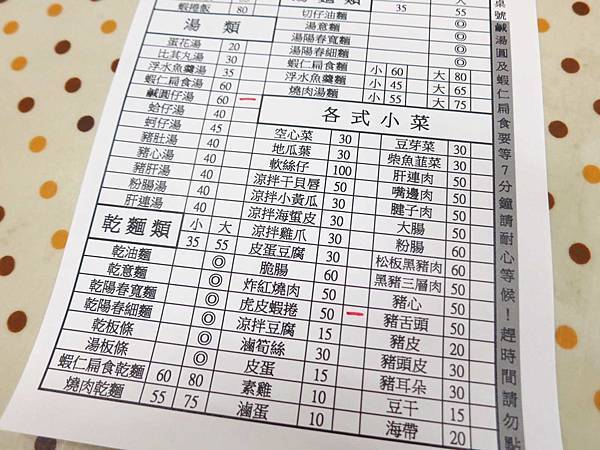 蝦捲飯 80
湯類
蛋花湯 20
比其丸湯 30
浮水魚羹湯 35
蝦仁扁食湯 60
鹹圓仔湯 60 一
蛤仔湯 40
蚵仔湯 45
豬肚湯 40
豬心湯 40
豬肝湯 40
粉腸湯 40
肝連湯 40
乾麵類 小 大
35 55
乾油麵 ◎
乾意麵 ◎
乾陽春寬麵 ◎
乾陽春細麵 ◎
乾板條 ◎
湯板條 ◎
蝦仁扁食乾麵 60 80
燒肉乾麵 55 75
35 55
切仔油麵 ◎
湯意麵 ◎
湯陽春寬麵 ◎
湯陽春細麵 ◎
蝦仁扁食麵 小 60 大 80
浮水魚羹麵 小 45 大 65
燒肉湯麵 小 55 大 75
各式小菜
空心菜 30
地瓜葉 30
軟絲仔 100
涼拌干貝唇 50
涼拌小黃瓜 30
涼拌海蜇皮 50
涼拌雞爪 30
皮蛋豆腐 30
脆腸 60
炸紅燒肉 50
虎皮蝦捲 50 一
涼拌豆腐 15
滷筍絲 30
皮蛋 15
素雞 10
滷蛋 10
豆芽菜 30
柴魚韮菜 30
肝連肉 50
嘴邊肉 50
腱子肉 50
大腸 50
粉腸 60
松板黑豬肉 60
黑豬三層肉 50
豬心 50
豬舌頭 50
豬皮 20
豬頭皮 30
豬耳朵 30
豆干 15
海帶 20
桌號
鹹湯圓及蝦仁扁食要等7分鐘請耐心等候！趕時間請勿點